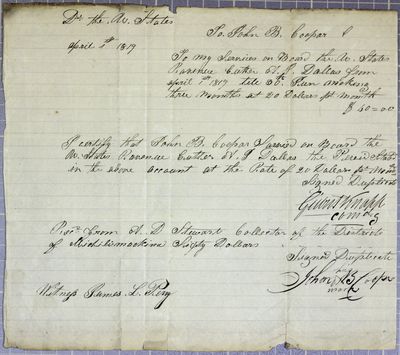 Dr the U. States
To John B. Cooper
April 1st 1819
To my Services on Board the U. States
Revenue Cutter A. J. Dallas from
April 1st 1819 till 30th June making
three months at 20 Dollars pr month
$ 60=00
I certify that John B. Cooper Served on Board the
U. States Revenue Cutter A. J Dallas the Period Stated
in the above account at the Rate of 20 Dollars pr Month
Signed Duplicate
Knapp
Comdg
Recd from A. D Stewart Collector of the District
of Michilimackine Sixty Dollars
Signed Duplicate
his
John B Cooper
mark
Witness James L. Perry